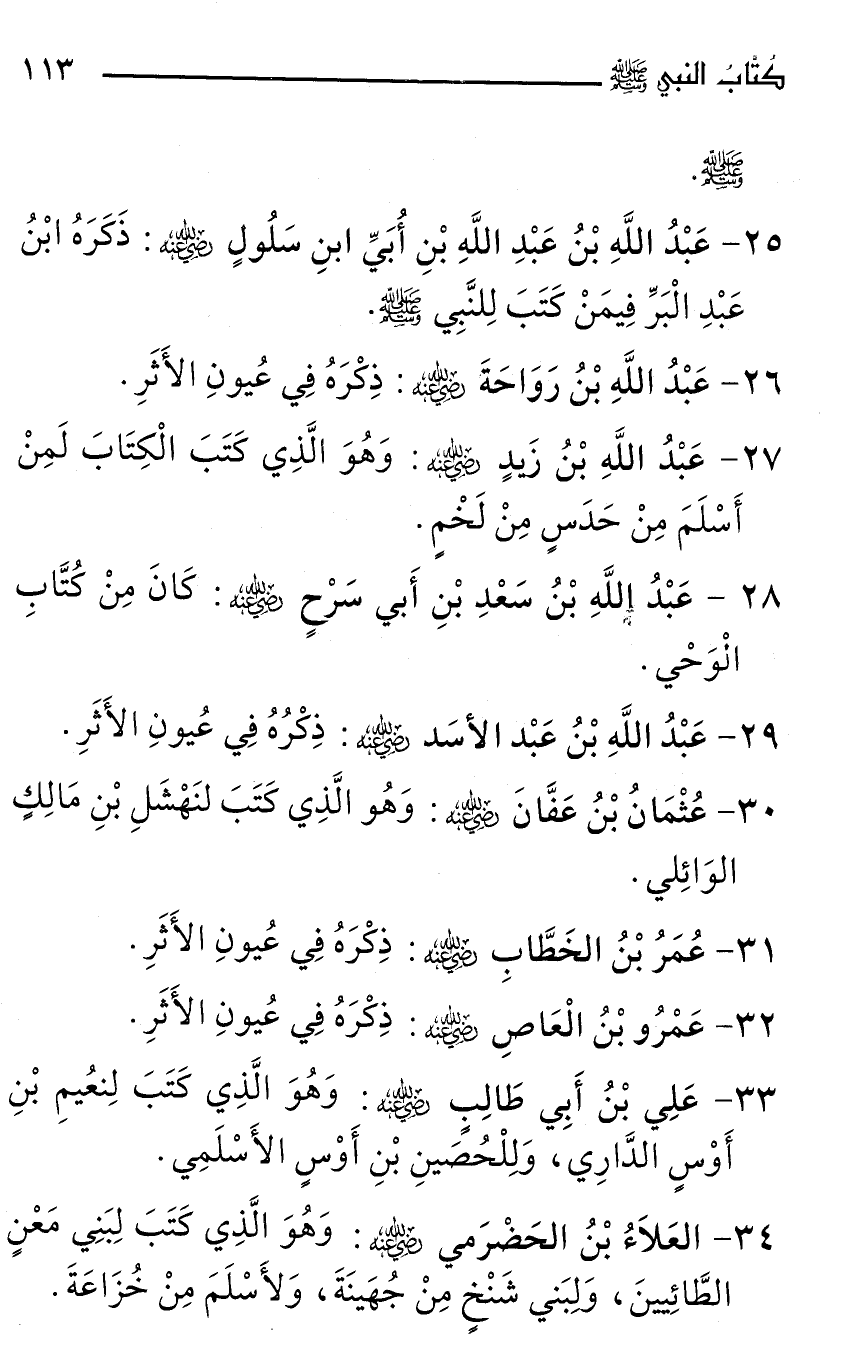 كُتَّابُ النبي ﷺ ١١٣
ﷺ.
٢٥- عَبْدُ اللَّهِ بْنُ عَبْدِ اللَّهِ بْنِ أُبَيِّ ابنِ سَلُولٍ رضي الله عنه : ذَكَرَهُ ابْنُ
عَبْدِ الْبَرِّ فِيمَنْ كَتَبَ لِلنَّبِي ﷺ.
٢٦- عَبْدُ اللَّهِ بْنُ رَوَاحَةَ رضي الله عنه : ذِكْرَهُ فِي عُيونِ الأَثَرِ.
٢٧- عَبْدُ اللَّهِ بْنُ زَيدٍ رضي الله عنه : وَهُوَ الَّذِي كَتَبَ الْكِتَابَ لَمِنْ
أَسْلَمَ مِنْ حَدَسٍ مِنْ لَخْمٍ.
٢٨ - عَبْدُ اللَّهِ بْنُ سَعْدِ بْنِ أَبي سَرْحٍ رضي الله عنه : كَانَ مِنْ كُتَّابِ
الْوَحْي.
٢٩- عَبْدُ اللَّهِ بْنُ عَبْد الأسَد رضي الله عنه : ذِكْرُهُ فِي عُيونِ الأَثَرِ.
٣٠- عُثْمَانُ بْنُ عَفَّانَ رضي الله عنه : وَهُو الَّذِي كَتَبَ لنَهْشَلِ بْنِ مَالِكٍ
الوَائِلي.
٣١- عُمَرُ بْنُ الخَطَّابِ رضي الله عنه : ذِكْرَهُ فِي عُيونِ الأَثَرِ.
٣٢- عَمْرُو بْنُ الْعَاصِ رضي الله عنه : ذِكْرَهُ فِي عُيونِ الأَثَرِ.
٣٣- عَلِي بْنُ أَبِي طَالِبٍ رضي الله عنه : وَهُوَ الَّذِي كَتَبَ لِنعُيمِ بْنِ
أَوْسٍ الدَّارِي، وَلِلْحُصَينِ بْنِ أَوْسٍ الأَسْلَمِي.
٣٤- العَلاَءُ بْنُ الحَضْرَمي رضي الله عنه : وَهُوَ الَّذِي كَتَبَ لِبَنِي مَعْنٍ
الطَّائِيينَ، وَلِبَني شَنْخٍ مِنْ جُهَينَةَ، وَلأَسْلَمَ مِنْ خُزَاعَةَ.